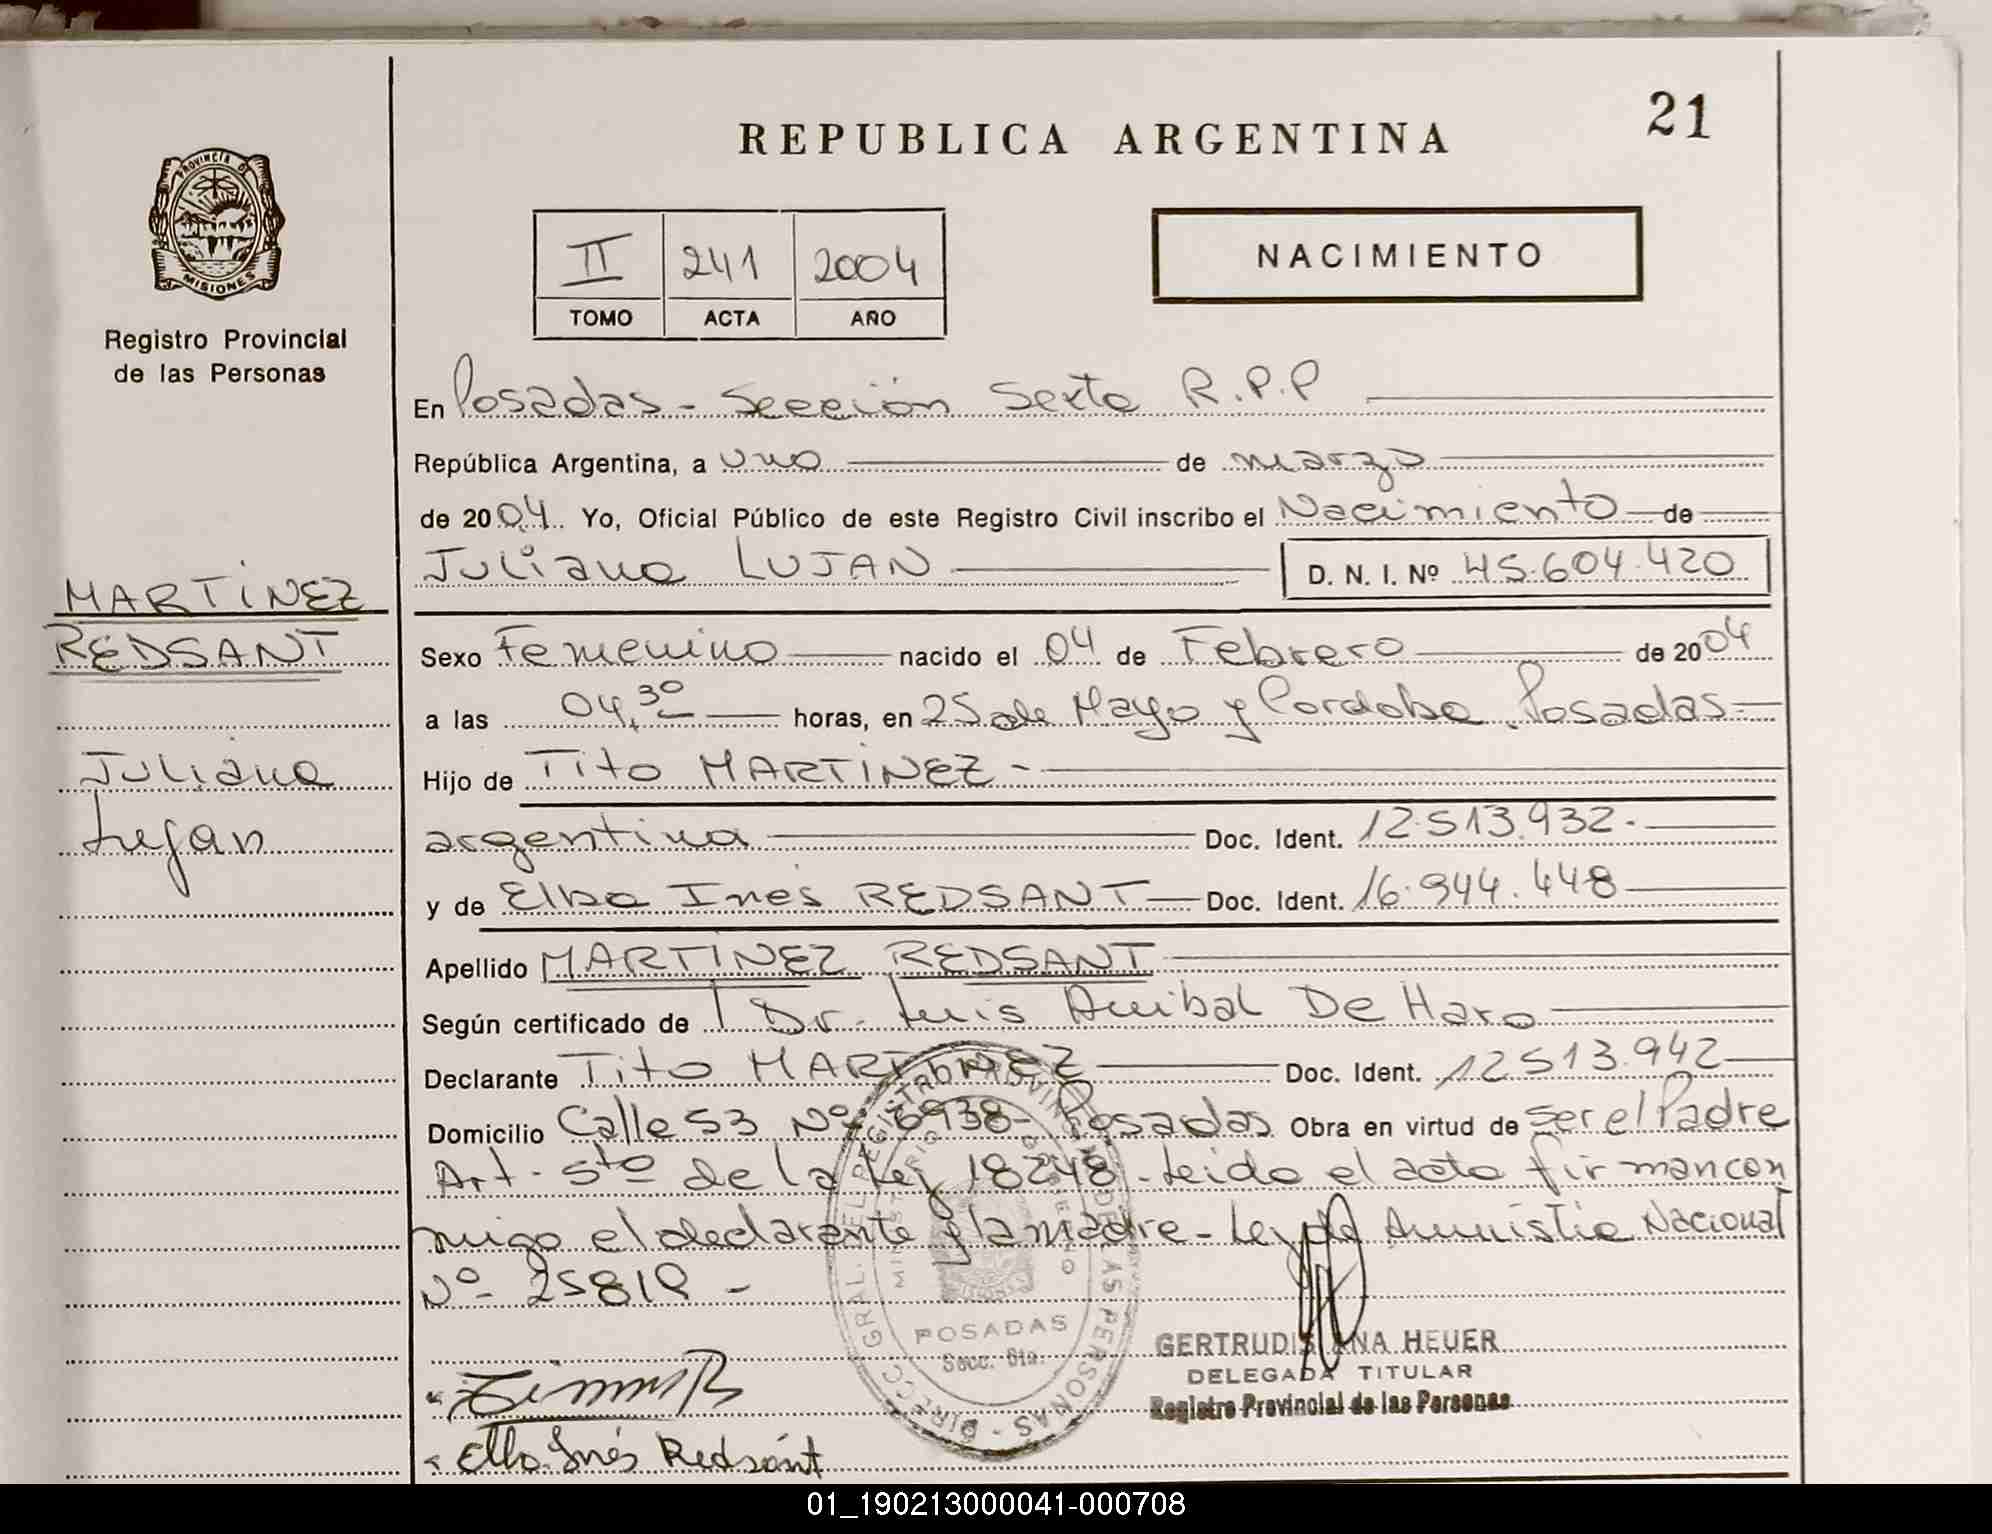 REPUBLICA ARGENTINA
21
PROVINCIA DE
MISIONES
Registro Provincial
de las Personas
II 241 2004
TOMO ACTA AÑO
NACIMIENTO
En Posadas - Sección Sexta R.P.P
República Argentina, a uno de marzo
de 2004. Yo, Oficial Público de este Registro Civil inscribo el Nacimiento de
Juliana LUJAN
D. N. I. Nº 45.604.420
MARTINEZ
REDSANT
Juliana
Lujan
Sexo Femenino nacido el 04 de Febrero de 2004
a las 04,30 horas, en 25 de Mayo y Cordoba. Posadas
Hijo de Tito MARTINEZ -
argentina Doc. Ident. 12.513.932.
y de Elba Inés REDSANT Doc. Ident. 16.944.448
Apellido MARTINEZ REDSANT
Según certificado de Dr. Luis Anibal De Haro
Declarante Tito MARTINEZ Doc. Ident. 12513.942
Domicilio Calle 53 Nº 6938 - Posadas Obra en virtud de ser el Padre
Art. 5to de la Ley 18248. Leido el acta firman con
migo el declarante y la madre - Ley de Amnistia Nacional
Nº 25819 -
POSADAS
Secc. 6ta.
GERTRUDIS ANA HEUER
DELEGADA TITULAR
Registro Provincial de las Personas
Elba Inés Redsánt
01_190213000041-000708